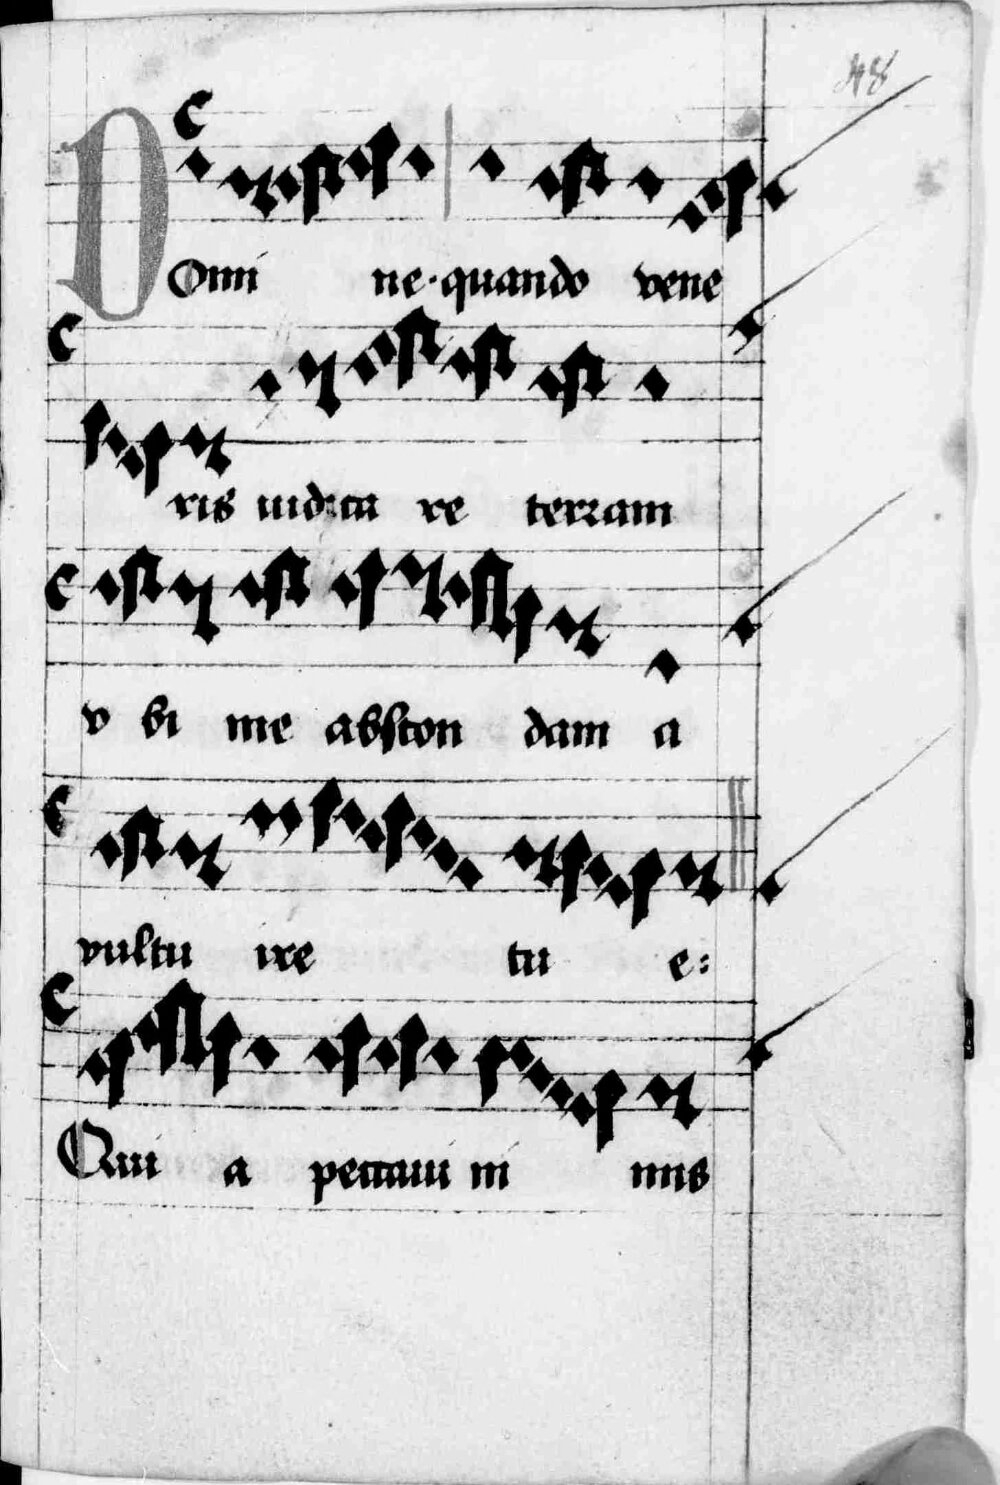 48
Domi ne·quando vene
ris iudica re terram
v bi me abscon dam a
vultu ire tu e:
Qui a peccaui ni mis